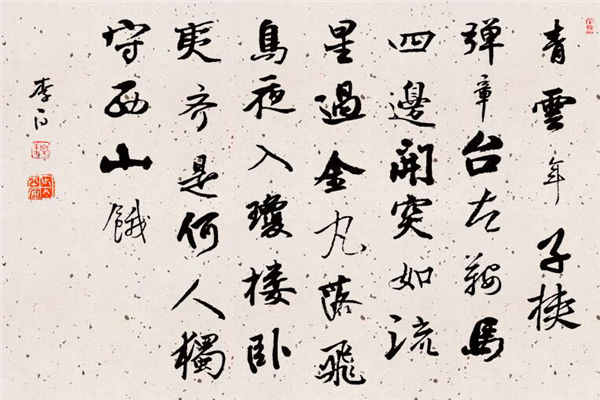 青雲年子挟
弹章台左鞍馬
四邊開突如流
星過金丸落飛
鳥夜入瓊楼卧
夷齐是何人獨
守西山餓
李白